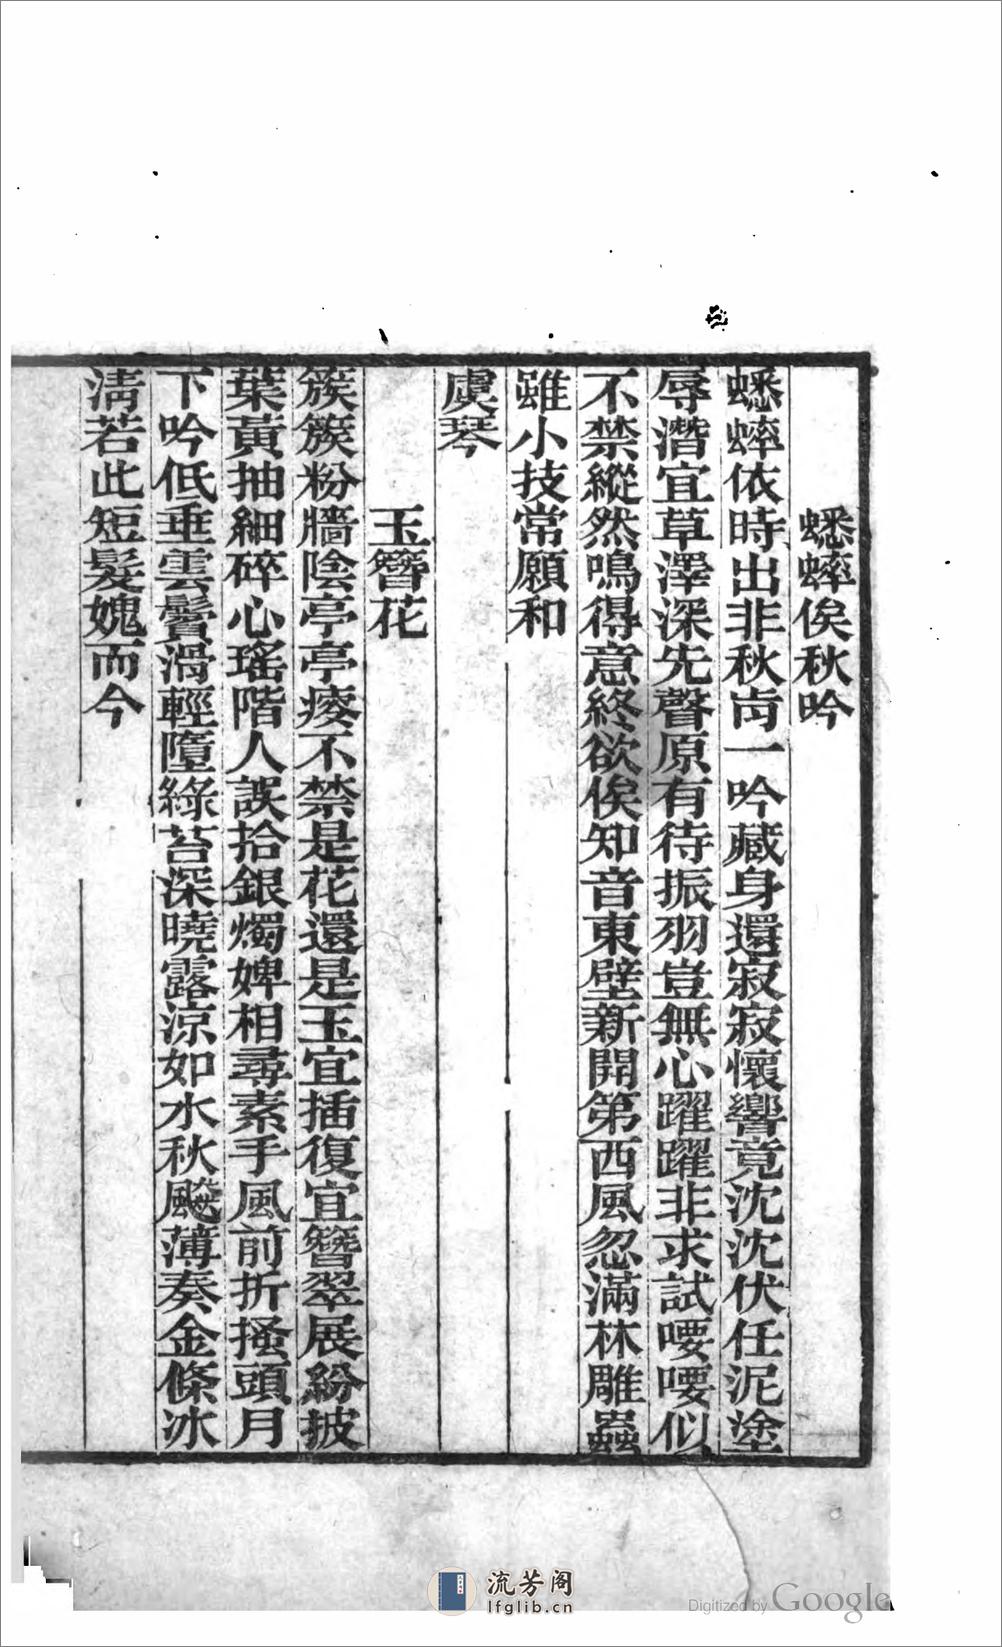 蟋蟀俟秋吟
蟋蟀依時出非秋肯一吟藏身還寂寂懷響竟沈沈伏任泥塗
辱潛宜草澤深先聲原有待振羽豈無心躍躍非求試喓喓似
不禁縱然鳴得意終欲俟知音東壁新開第西風忽滿林雕蟲
雖小技常願和
虞琴
玉簪花
簇簇粉牆陰亭亭痠不禁是花還是玉宜插復宜簪翠展紛披
葉黃抽細碎心瑤階人誤拾銀燭婢相尋素手風前折搔頭月
下吟低垂雲鬢滑輕墮綠苔深曉露涼如水秋飈薄奏金條冰
淸若此短髮媿而今
流芳阁
lfglib.cn
Digitized by Google